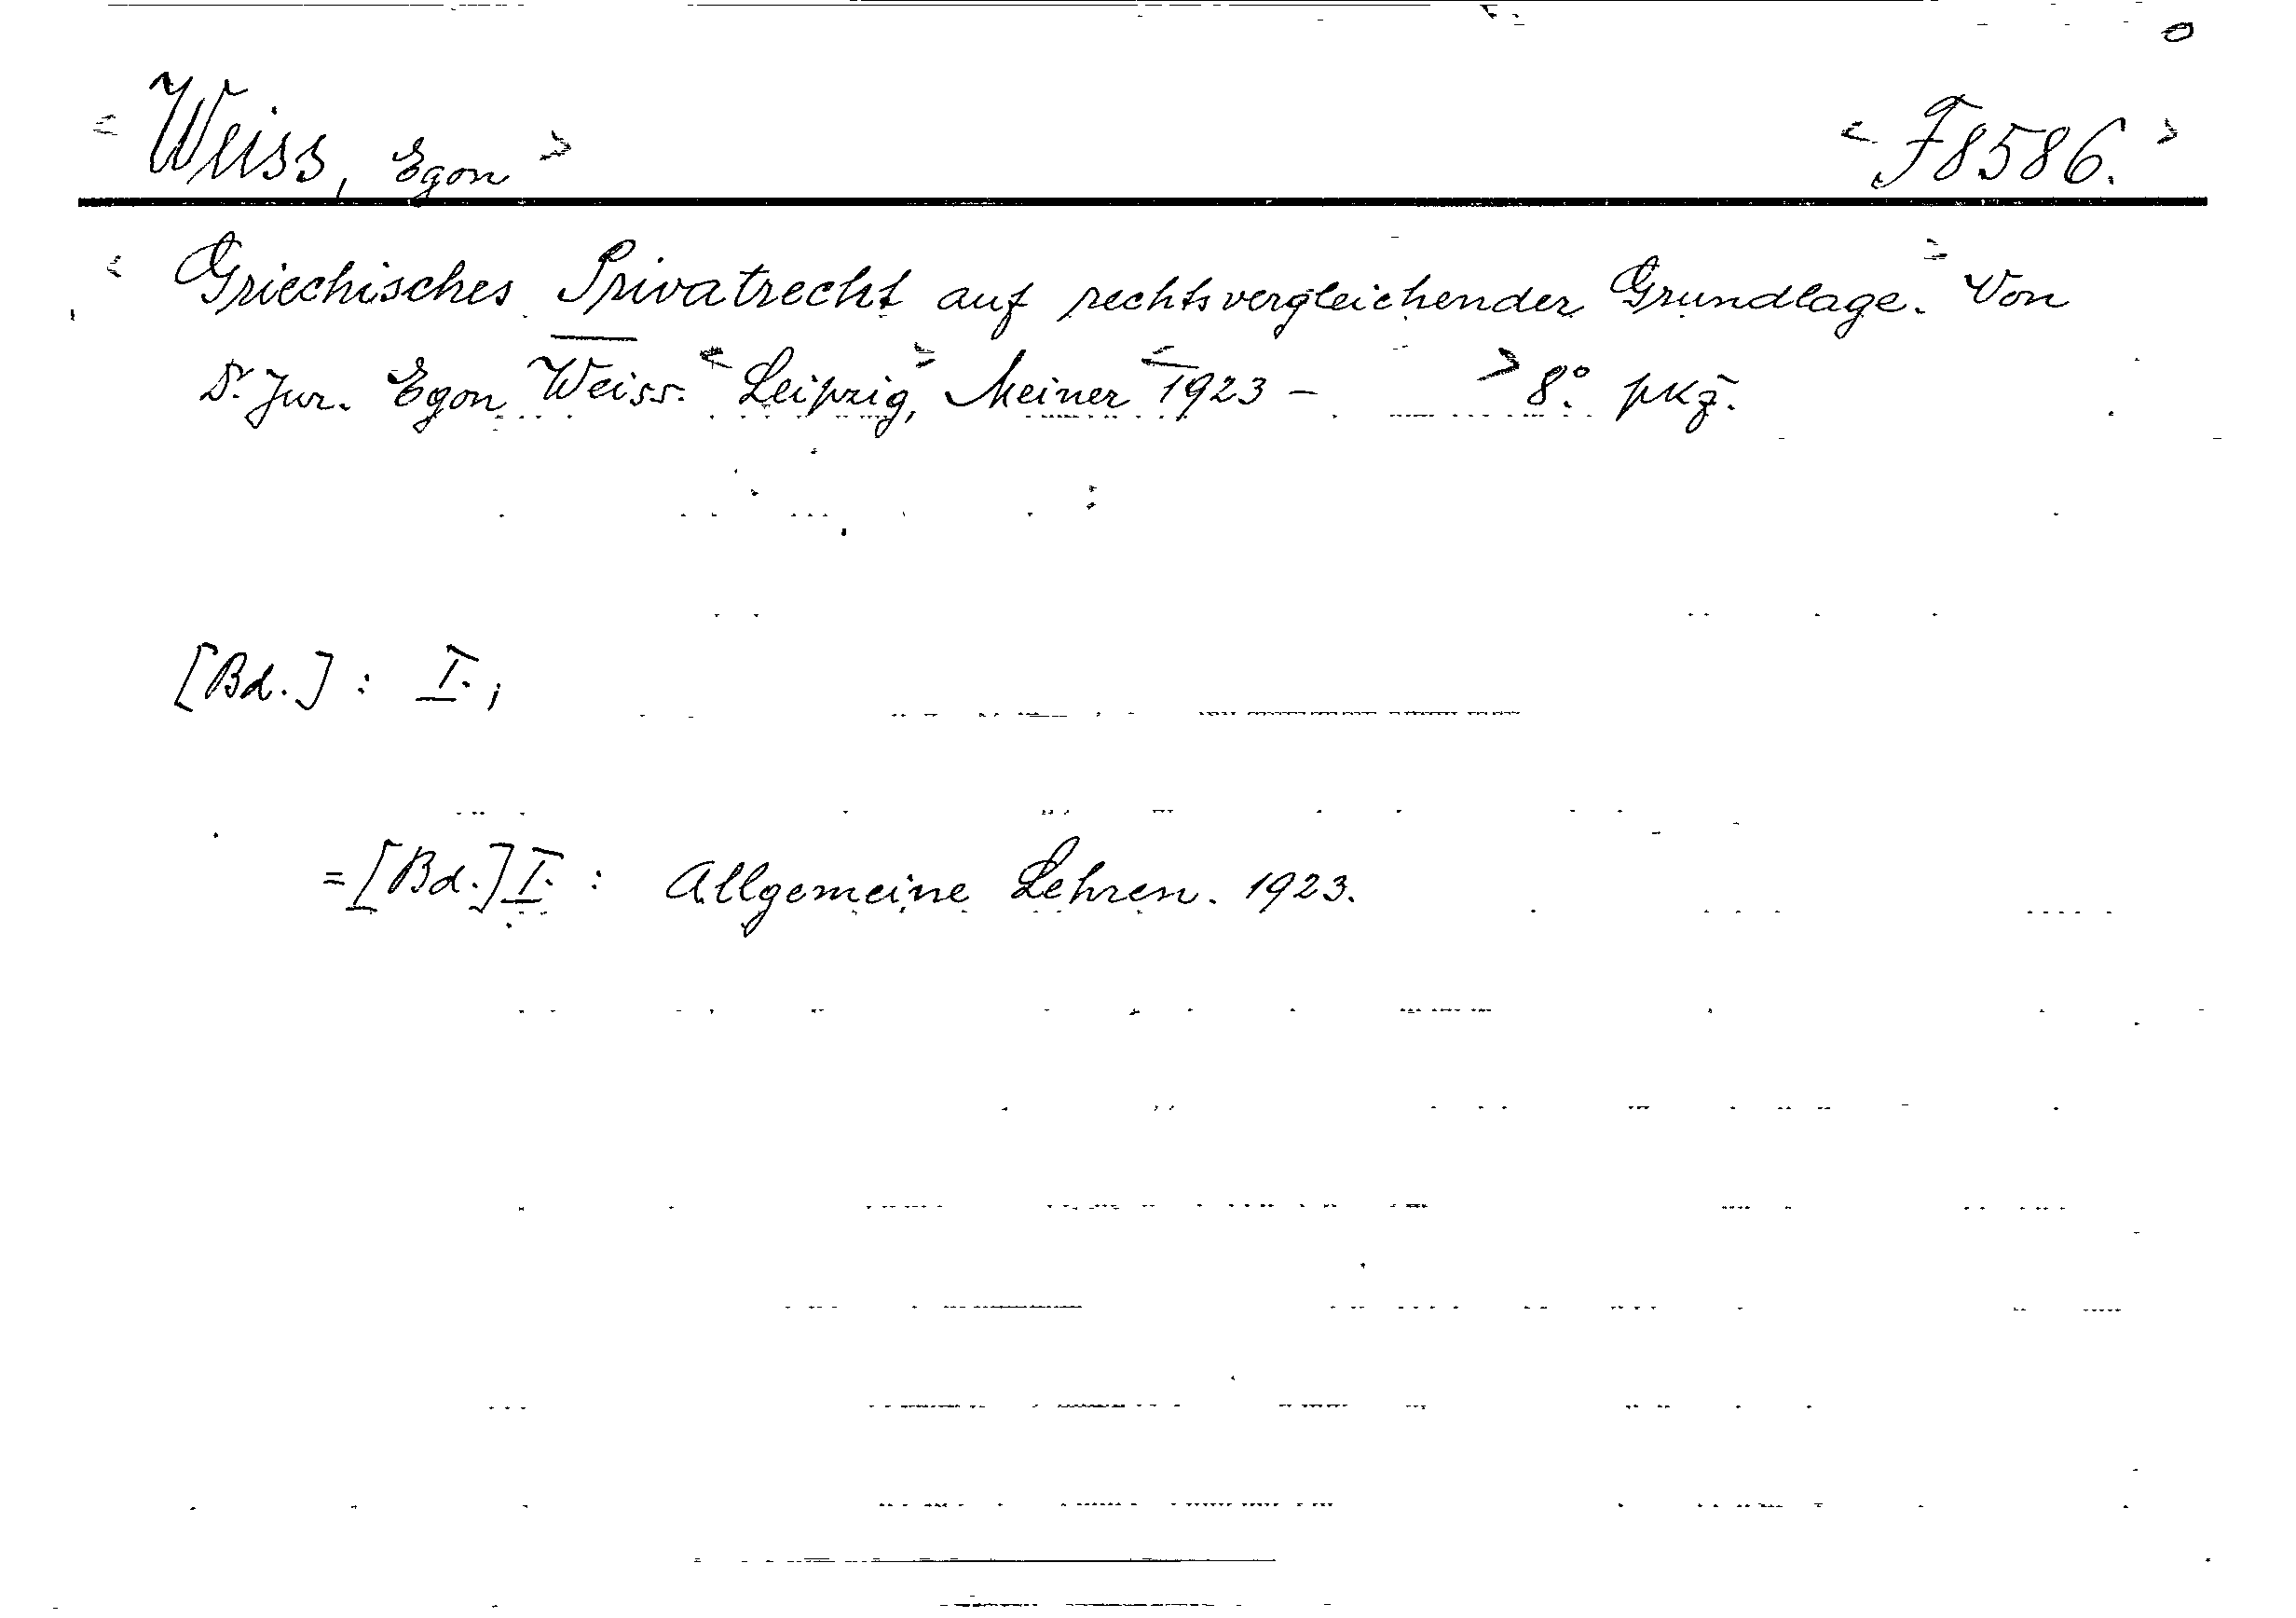 < Weiss, Egon > < F8586. >
< Griechisches Privatrecht auf rechtsvergleichender Grundlage. > Von
Dr. Jur. Egon Weiss. < Leipzig, > Meiner < 1923 – > 8°.
[Bd.] : I. ;
= [Bd.] I. : Allgemeine Lehren. 1923.